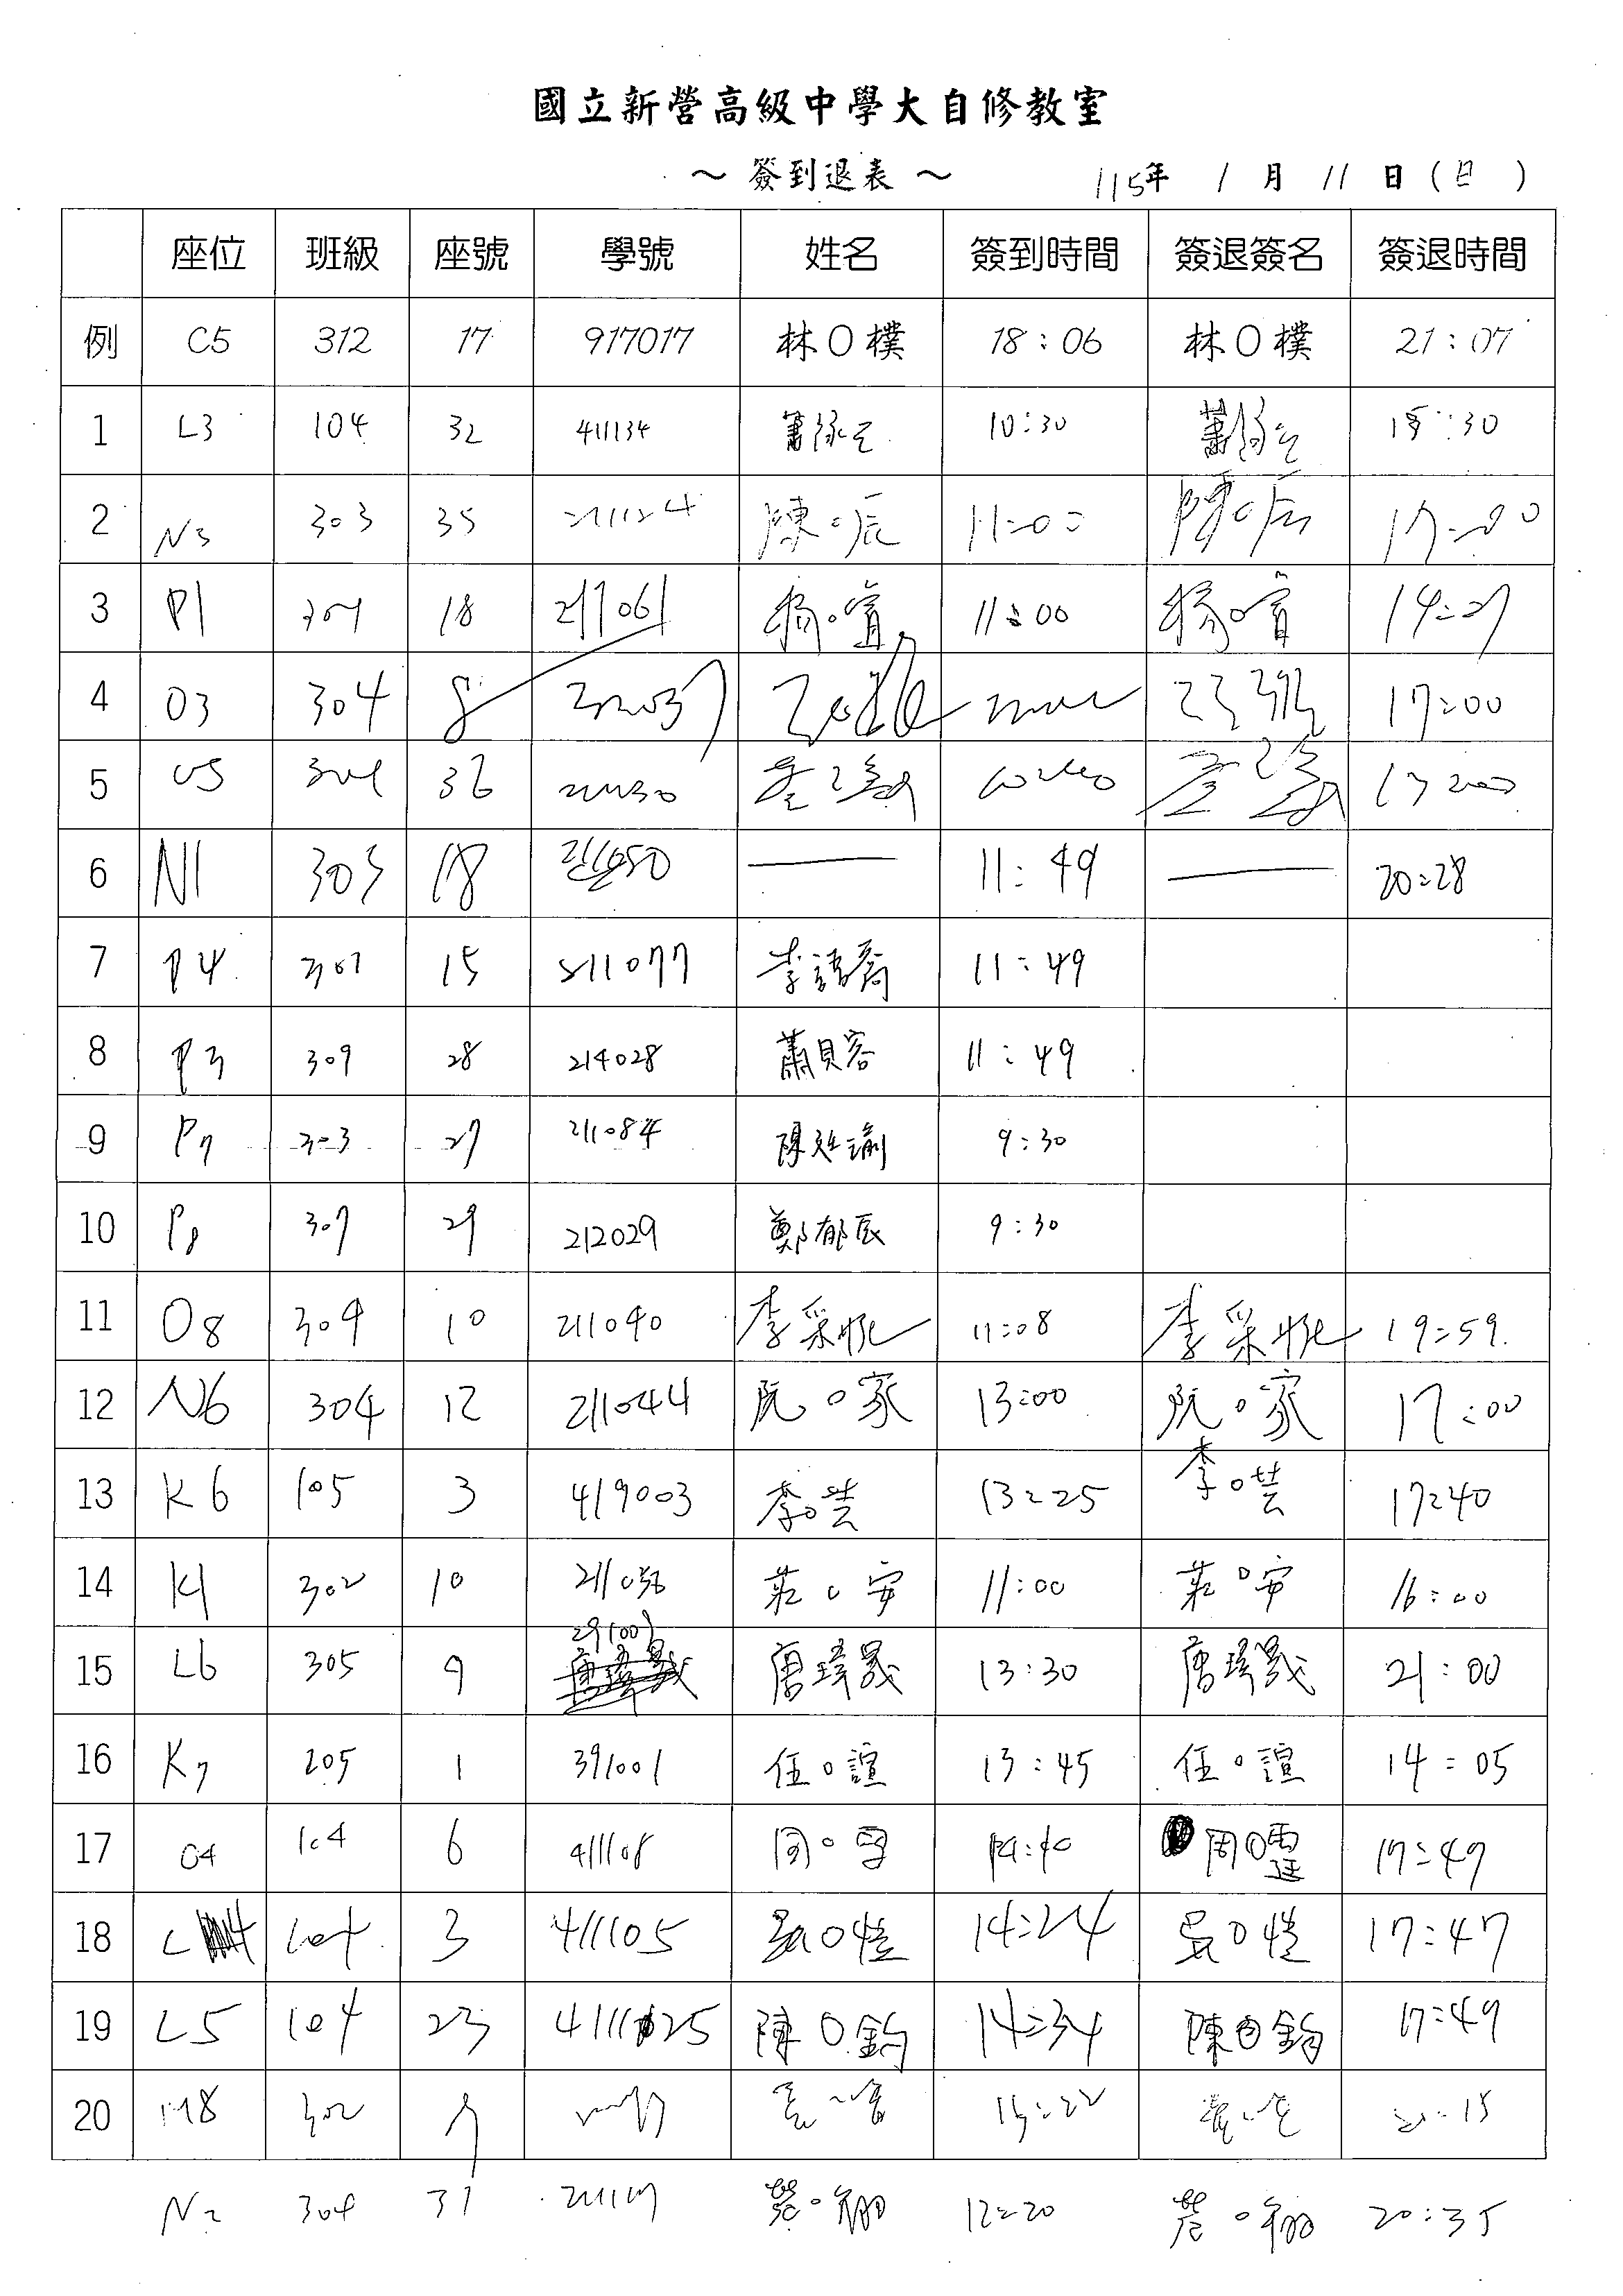 國立新營高級中學大自修教室
～ 簽到退表 ～ 115年 1月 11日(日)
座位 班級 座號 學號 姓名 簽到時間 簽退簽名 簽退時間
例 C5 312 17 917017 林O樸 18:06 林O樸 21:07
1 L3 104 32 411134 10:30 :30
2 N3 303 35 211124 陳O辰 11:00 陳O辰 17:00
3 P1 307 18 217061 楊O萱 11:00 楊O萱 14:27
4 O3 304 8 17:00
5 304 36
6 N1 303 18 11:49 20:28
7 P4 307 15 211077 李 11:49
8 P3 309 28 214028 蕭貝容 11:49
9 P7 303 27 211084 陳 9:30
10 P8 307 29 212029 鄭郁辰 9:30
11 O8 304 10 211040 李采 11:08 李采 19:59
12 N6 304 12 211044 阮O家 13:00 阮O家 17:00
13 K6 105 3 419003 李O芸 13:25 李O芸 17:40
14 K1 302 10 莊O安 11:00 莊O安 16:00
15 L6 305 9 唐瑋晟 13:30 唐瑋晟 21:00
16 K7 205 1 391001 任O諠 13:45 任O諠 14:05
17 O4 104 6 411108 周O 14:40 周O霆 17:47
18 L4 104 3 411105 吳O愷 14:24 吳O愷 17:47
19 L5 104 23 411125 陳O鈞 14:34 陳O鈞 17:49
20 M8 302 :15
N2 304 31 O翔 12:20 O翔 20:35